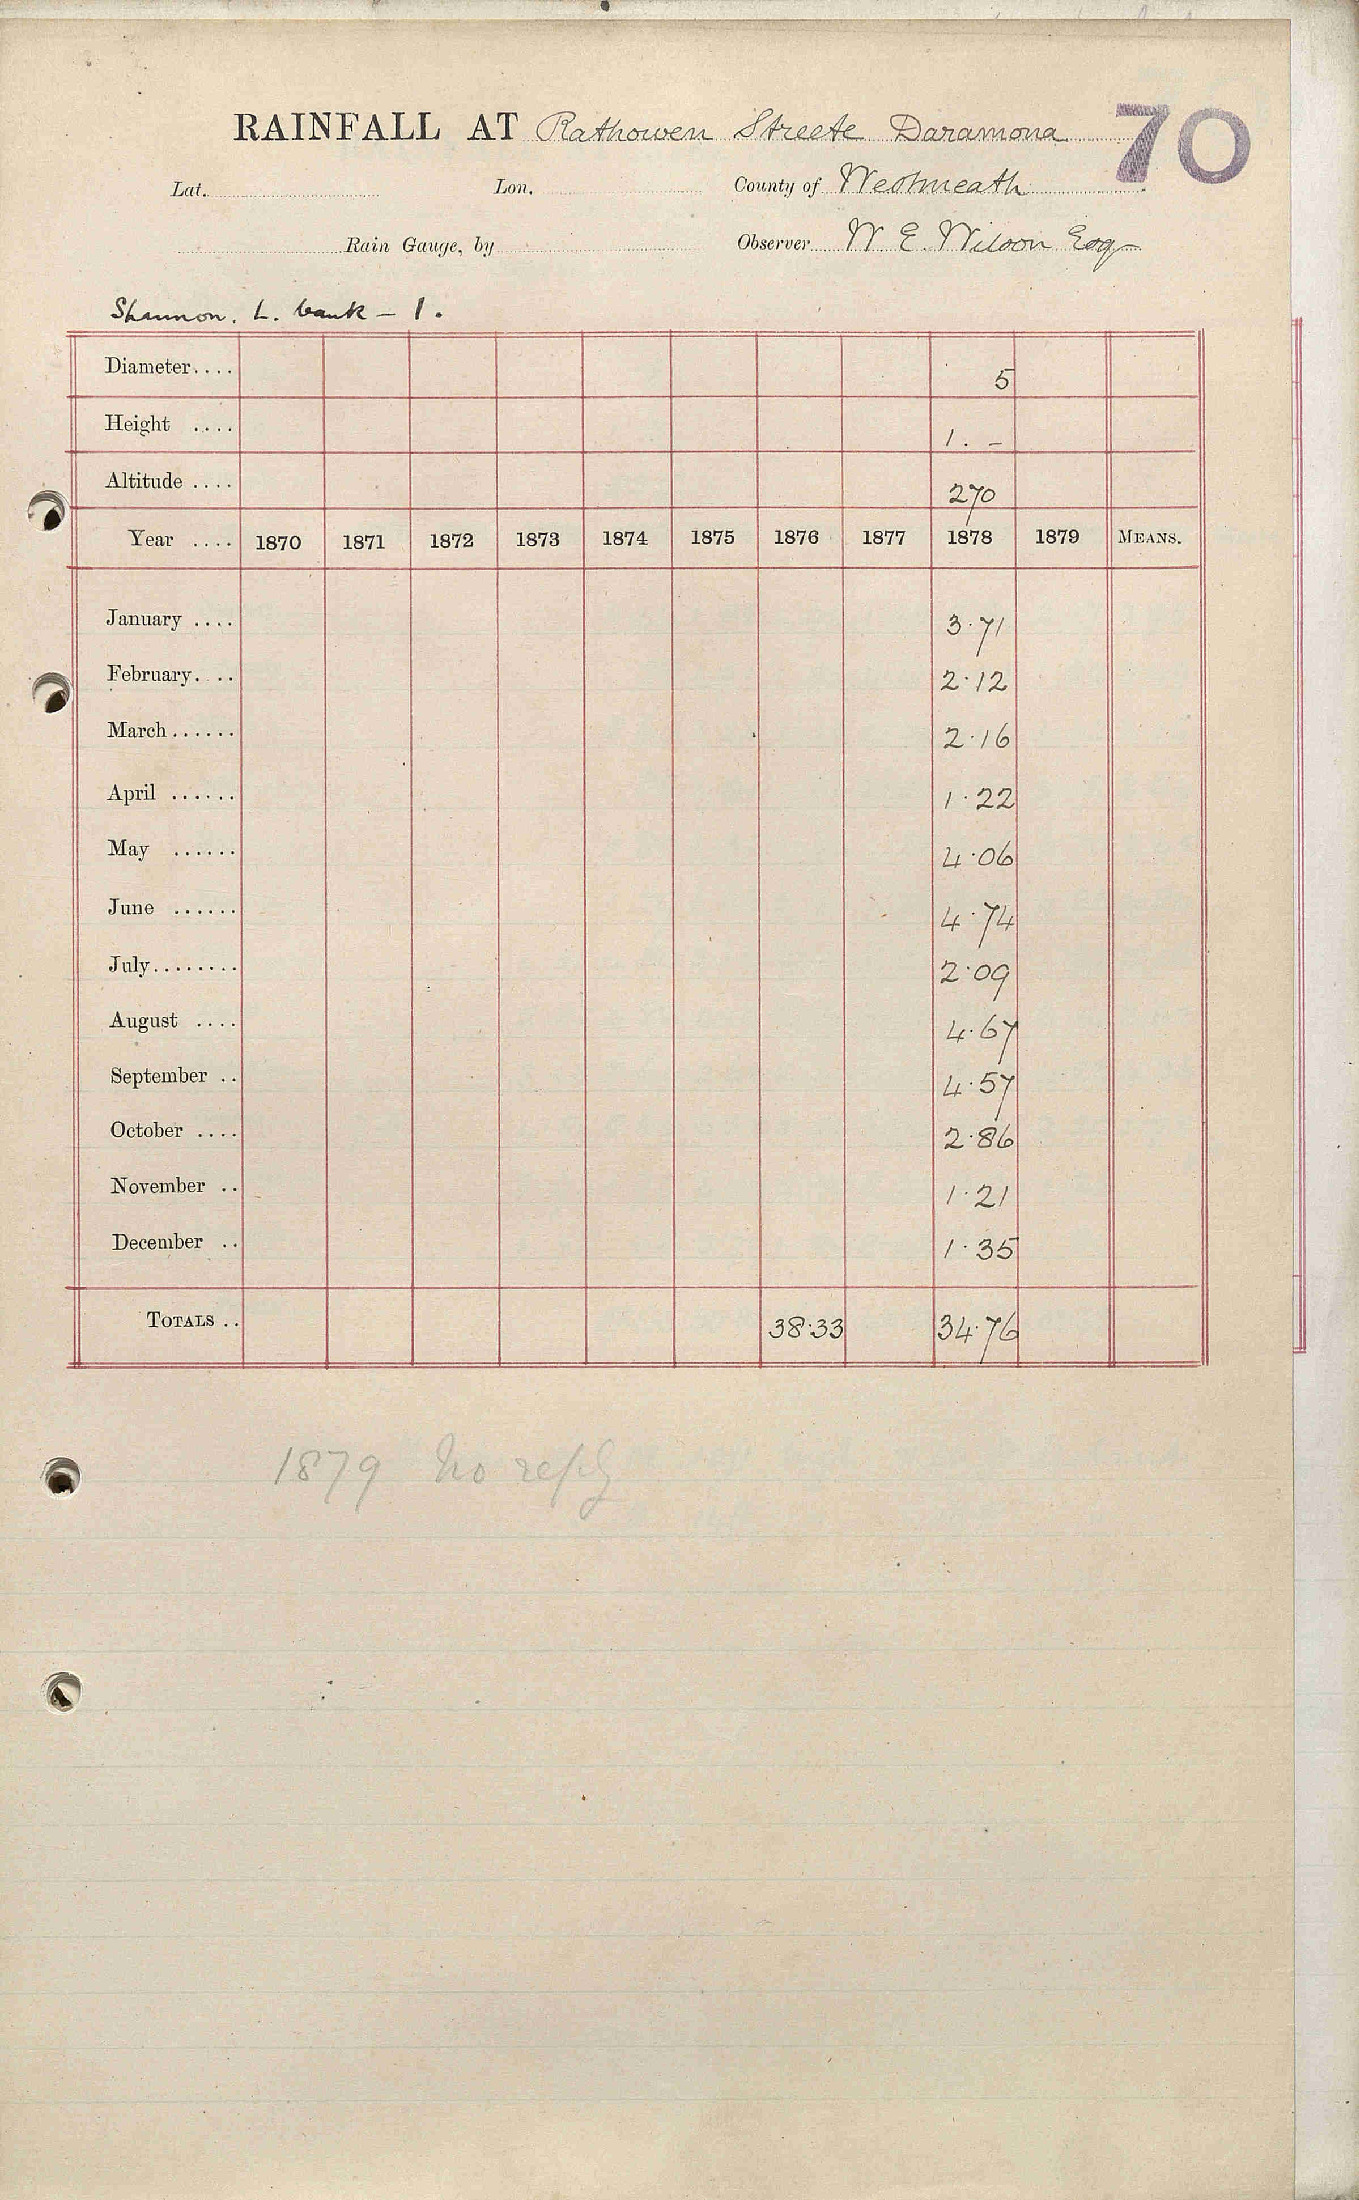 RAINFALL AT Rathowen Streete Daramona 70
Lat. Lon. County of Westmeath
Rain Gauge, by Observer W E. Wilson Esq
Shannon. L. bank - 1.
Diameter.... 5
Height .... 1. -
Altitude .... 270
Year .... 1870 1871 1872 1873 1874 1875 1876 1877 1878 1879 MEANS.
January .... 3.71
February. .. 2.12
March...... 2.16
April ...... 1.22
May ...... 4.06
June ...... 4.74
July........ 2.09
August .... 4.67
September .. 4.57
October .... 2.86
November .. 1.21
December .. 1.35
TOTALS .. 38.33 34.76
1879 No reply